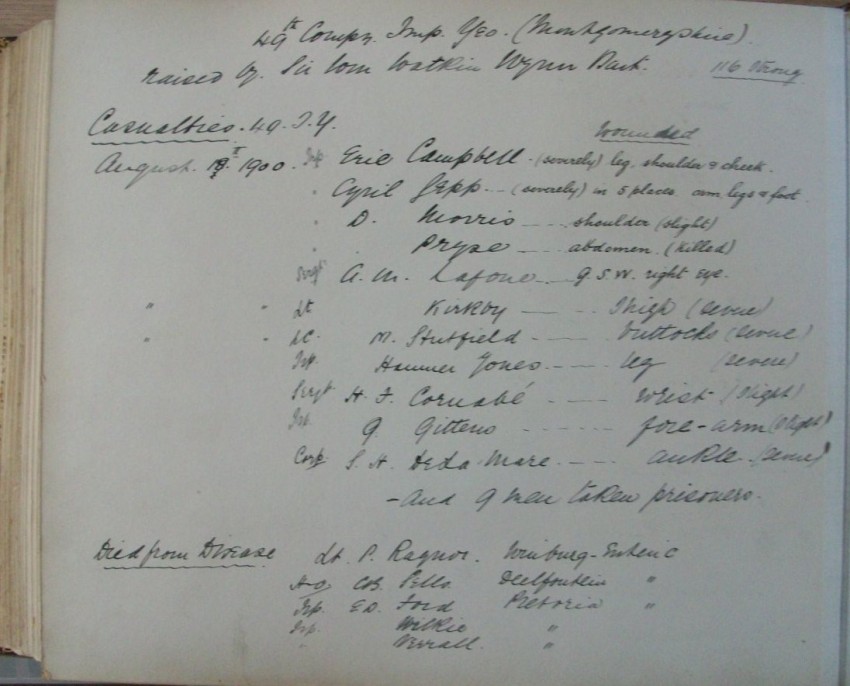 49th Compy. Imp. Yeo. (Montgomeryshire).
raised by. Sir Wm Watkin Wynn Bart. 116 strong
Casualties. 49. I.Y. Wounded
August. 1900. Trp Eric Campbell - (severely) leg, shoulder & cheek.
" Cyril Jepp - (severely) in 5 places arm, legs & foot
" D. Morris shoulder (slight)
" Pryse abdomen. (Killed)
Sergt A. M. Lafone G.S.W. right eye.
" " Lt Kirkby Thigh (severe)
" " M. Stutfield buttocks (severe)
Trp. Hanmer Jones leg (severe)
Sergt H. J. Cornabé wrist (slight)
Trp. G. Gittens fore-arm (slight)
Corp. S. H. Mare ankle (severe)
- And 9 men taken prisoners.
Died from Disease Lt. P. Raynor. Winburg - Enteric
Pells "
Trp. E.D. Ford Pretoria "
Trp. Wilkie "
" Verrall "